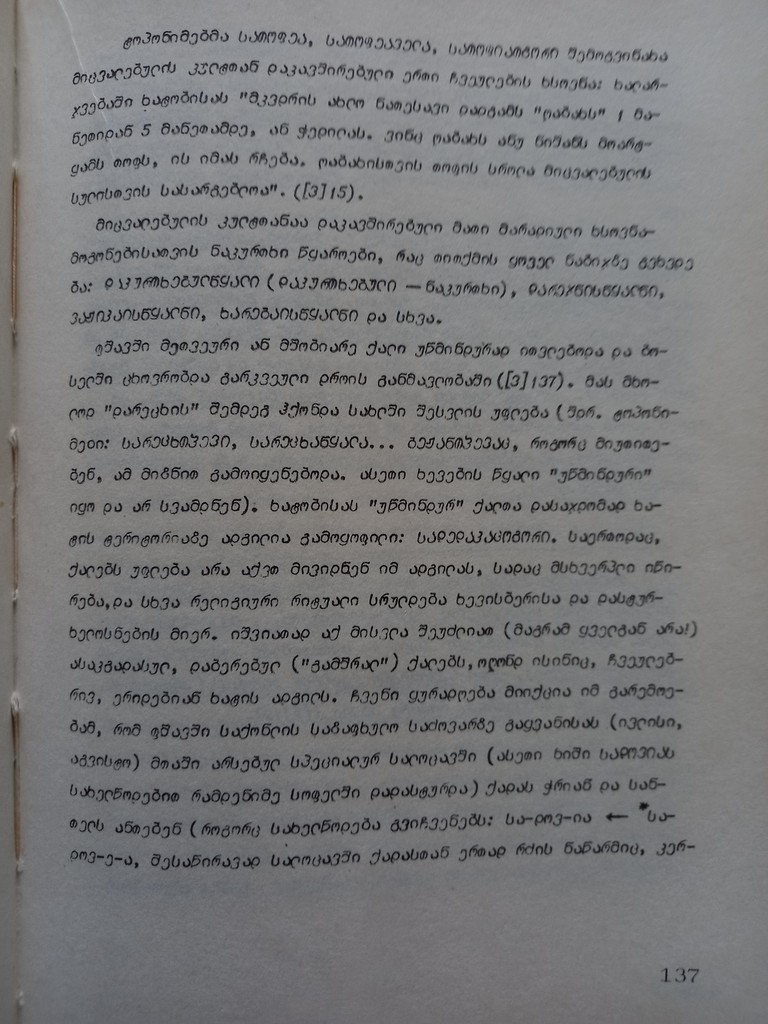 ტოპონიმებმა სათოფეა, სათოფეავილა, სათოფიატგორი შემოგვინახა
მიცვალებულის კულტთან დაკავშირებული ერთი ჩვეულების ხსოვნა: ხალარ-
ჯვებაში ხატობისას "მკვდრის ახლო ნათესავი დადგამს "ღაბახს" 1 მა-
ნეთიდან 5 მანეთამდე, ან ჭედილას. ვინც ღაბახს ანუ ნიშანს მოარტ-
ყამს თოფს, ის იმას რჩება. ღაბახისთვის თოფის სროლა მიცვალებულის
სულისთვის სასარგებლოა". ([3]15).
მიცვალებულის კულტთანაა დაკავშირებული მათი მარადიული ხსოვნა-
მოგონებისათვის ნაკურთხი წყაროები, რაც თითქმის ყოველ ნაბიჯზე გვხვდე
ბა: დაკურთხებულწყალი (დაკურთხებული — ნაკურთხი), დარეჯნისწყალნი,
ვაჟიკაისწყალნი, ხარებაისწყალნი და სხვა.
ფშავში მეთვეური ან მშობიარე ქალი უწმინდურად ითვლებოდა და ბო-
სელში ცხოვრობდა გარკვეული დროის განმავლობაში ([3]137). მას მხო-
ლოდ "დარეცხის" შემდეგ ჰქონდა სახლში შესვლის უფლება (შდრ. ტოპონი-
მები: სარეცხთჴევი, სარეცხანწყალა... ბეჟანთჴევაც, როგორც მიუთითე-
ბენ, ამ მიზნით გამოიყენებოდა. ასეთი ხევების წყალი "უწმინდური"
იყო და არ სვამდნენ). ხატობისას "უწმინდურ" ქალთა დასაჯდომად ხა-
ტის ტერიტორიაზე ადგილია გამოყოფილი: სადედაკაცოგორი. საერთოდაც,
ქალებს უფლება არა აქვთ მივიდნენ იმ ადგილას, სადაც მსხვერპლი იწი-
რება,და სხვა რელიგიური რიტუალი სრულდება ხევისბერისა და დასტურ-
ხელოსნების მიერ. იშვიათად აქ მისვლა შეუძლიათ (მაგრამ ყველგან არა!)
ასაკგადასულ, დაბერებულ ("გამშრალ") ქალებს, ოღონდ ისინიც, ჩვეულებ-
რივ, ერიდებიან ხატის ადგილს. ჩვენი ყურადღება მიიქცია იმ გარემოე-
ბამ, რომ ფშავში საქონლის საზაფხულო საძოვარზე გაყვანისას (ივლისი,
აგვისტო) მთაში არსებულ სპეციალურ სალოცავში (ასეთი ხიში სადოვიას
სახელწოდებით რამდენიმე სოფელში დადასტურდა) ქადას ჭრიან და სან-
თელს ანთებენ (როგორც სახელწოდება გვიჩვენებს: სა-დოვ-ია ← *სა-
დოვ-ე-ა, შესაწირავად სალოცავში ქადასთან ერთად რძის ნაწარმიც, კერ-
137